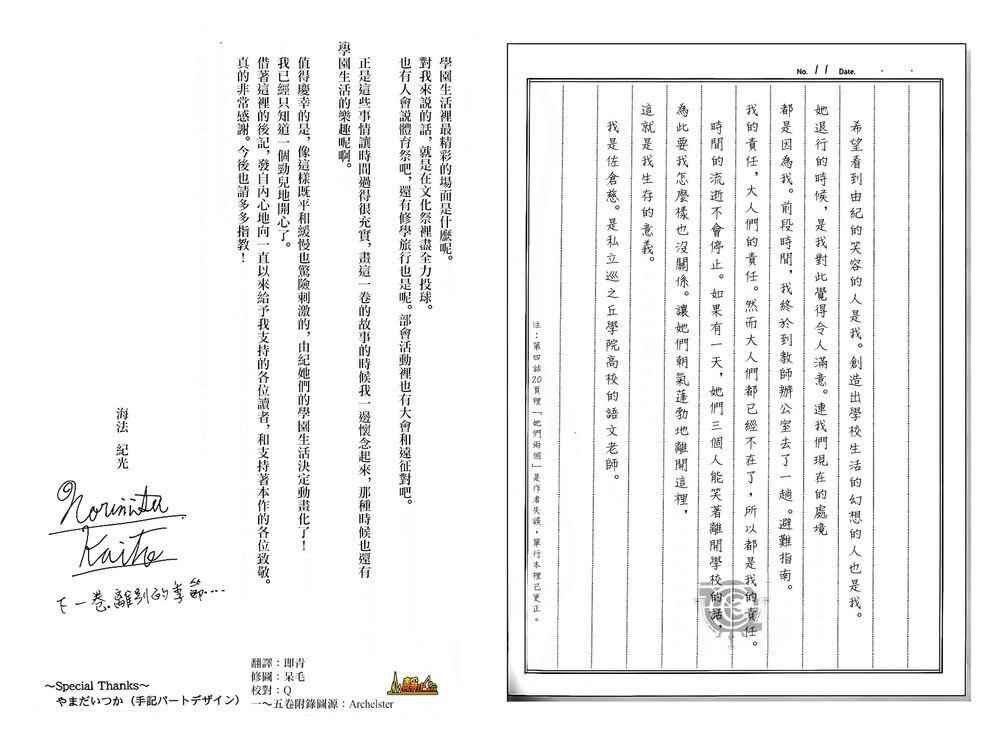 No. 11 Date. ・ ・
希望看到由紀的笑容的人是我。創造出學校生活的幻想的人也是我。
她退行的時候，是我對此覺得令人滿意。連我們現在的處境
都是因為我。前段時間，我終於到教師辦公室去了一趟。避難指南。
我的責任，大人們的責任。然而大人們都已經不在了，所以都是我的責任。
時間的流逝不會停止。如果有一天，她們三個人能笑著離開學校的話，
為此要我怎麼樣也沒關係。讓她們朝氣蓬勃地離開這裡，
這就是我生存的意義。
我是佐倉慈。是私立巡之丘學院高校的語文老師。
注：第四話20頁裡「她們兩個」是作者失誤，單行本裡已更正。
學園生活裡最精彩的場面是什麼呢。
對我來說的話，就是在文化祭裡盡全力投球。
也有人會說體育祭吧，還有修學旅行也是呢。部會活動裡也有大會和遠征對吧。
正是這些事情讓時間過得很充實，畫這一卷的故事的時候我一邊懷念起來，那種時候也還有
學園生活的樂趣呢啊。
值得慶幸的是，像這樣既平和緩慢也驚險刺激的，由紀她們的學園生活決定動畫化了！
我已經只知道一個勁兒地開心了。
借著這裡的後記，發自內心地向一直以來給予我支持的各位讀者，和支持著本作的各位致敬。
真的非常感謝。今後也請多多指教！
海法 紀光
Norimitsu
Kaiho
下一卷,離別的季節....
翻譯：即青
修圖：呆毛
校對：Q
一～五卷附錄圖源：Archelster
～Special Thanks～
やまだいつか（手記パートデザイン）